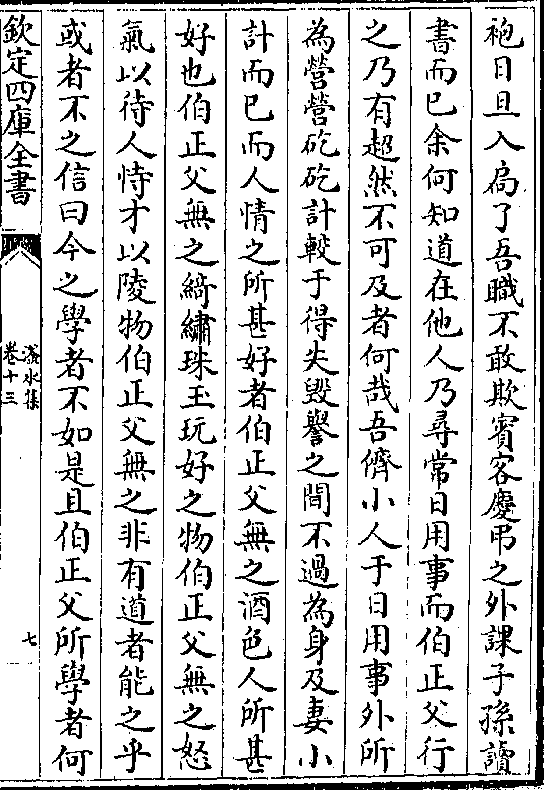 袍日旦入局了吾職不敢欺賓客慶弔之外課子孫讀
書而已余何知道在他人乃尋常日用事而伯正父行
之乃有超然不可及者何哉吾儕小人于日用事外所
為營營矻矻計較于得失毀譽之間不過為身及妻小
計而已而人情之所甚好者伯正父無之酒色人所甚
好也伯正父無之綺繡珠玉玩好之物伯正父無之怒
氣以待人恃才以陵物伯正父無之非有道者能之乎
或者不之信曰今之學者不如是且伯正父所學者何
欽定四庫全書
滏水集
卷十三
七